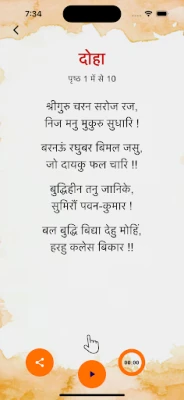 7:34
दोहा
पृष्ठ 1 में से 10
श्रीगुरु चरन सरोज रज,
निज मनु मुकुरु सुधारि !
बरनऊं रघुबर बिमल जसु,
जो दायकु फल चारि !!
बुद्धिहीन तनु जानिके,
सुमिरौं पवन-कुमार !
बल बुद्धि बिद्या देहु मोहिं,
हरहु कलेस बिकार !!
00:00